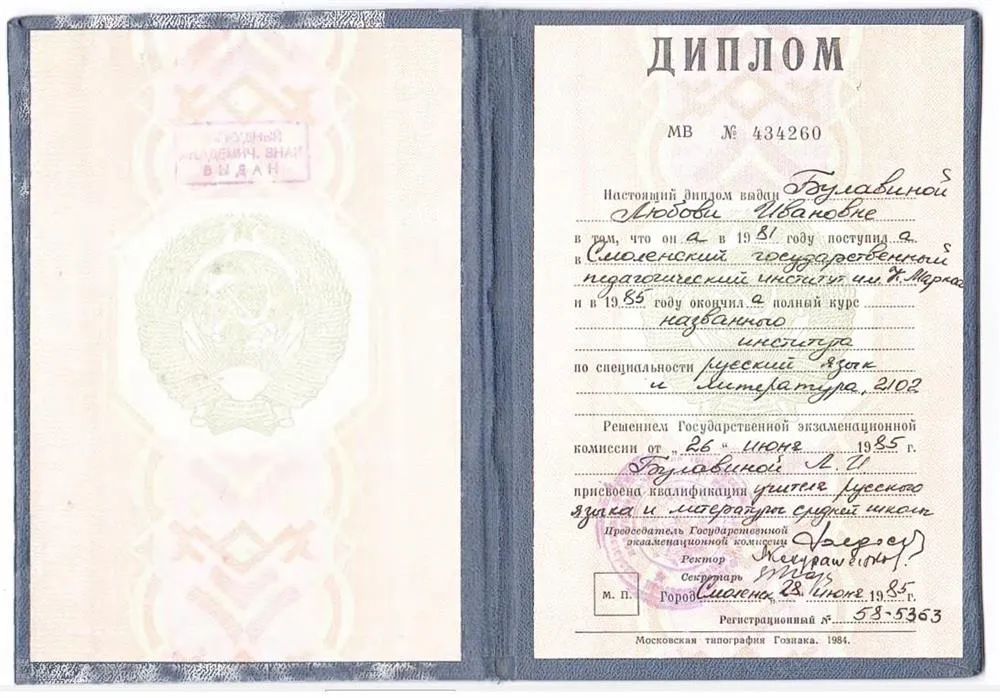 ДИПЛОМ
МВ № 434260
Настоящий диплом выдан Булавиной
Любови Ивановне
в том, что он а в 1981 году поступил а
в Смоленский государственный
педагогический институт им. К. Маркса
и в 1985 году окончил а полный курс
названного
института
по специальности русский язык
и литература, 2102
Решением Государственной экзаменационной
комиссии от „26“ июня 1985 г.
Булавиной Л. И
присвоена квалификация учителя русского
языка и литературы средней школы
Председатель Государственной
экзаменационной комиссии
Ректор
Секретарь
М. П.
Город Смоленск, 28 июня 1985 г.
Регистрационный № 58-5363
Московская типография Гознака. 1984.